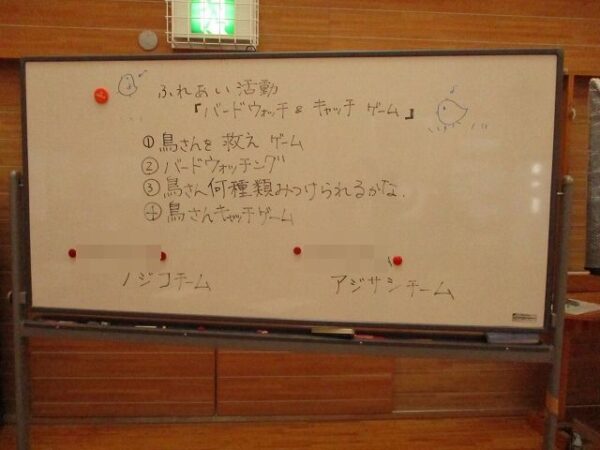 ふれあい活動
『バードウォッチ&キャッチ ゲーム』
①鳥さんを 救え ゲーム
②バードウォッチング
③鳥さん何種類みつけられるかな.
④鳥さんキャッチゲーム
ノジコチーム
アジサシチーム